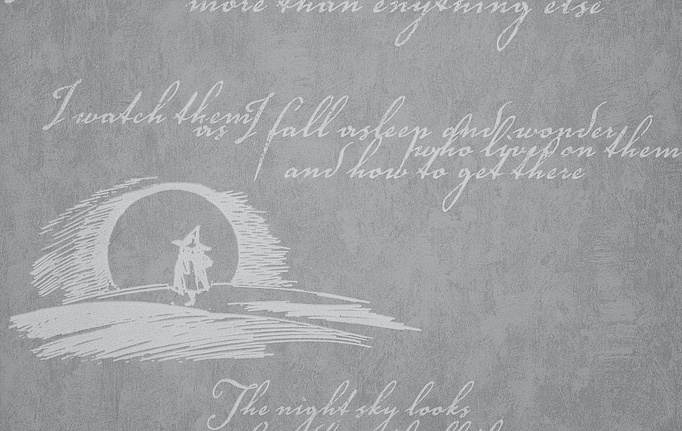 more than enything else
I watch them
as I fall asleep and wonder
who lives on them
and how to get there
The night sky looks